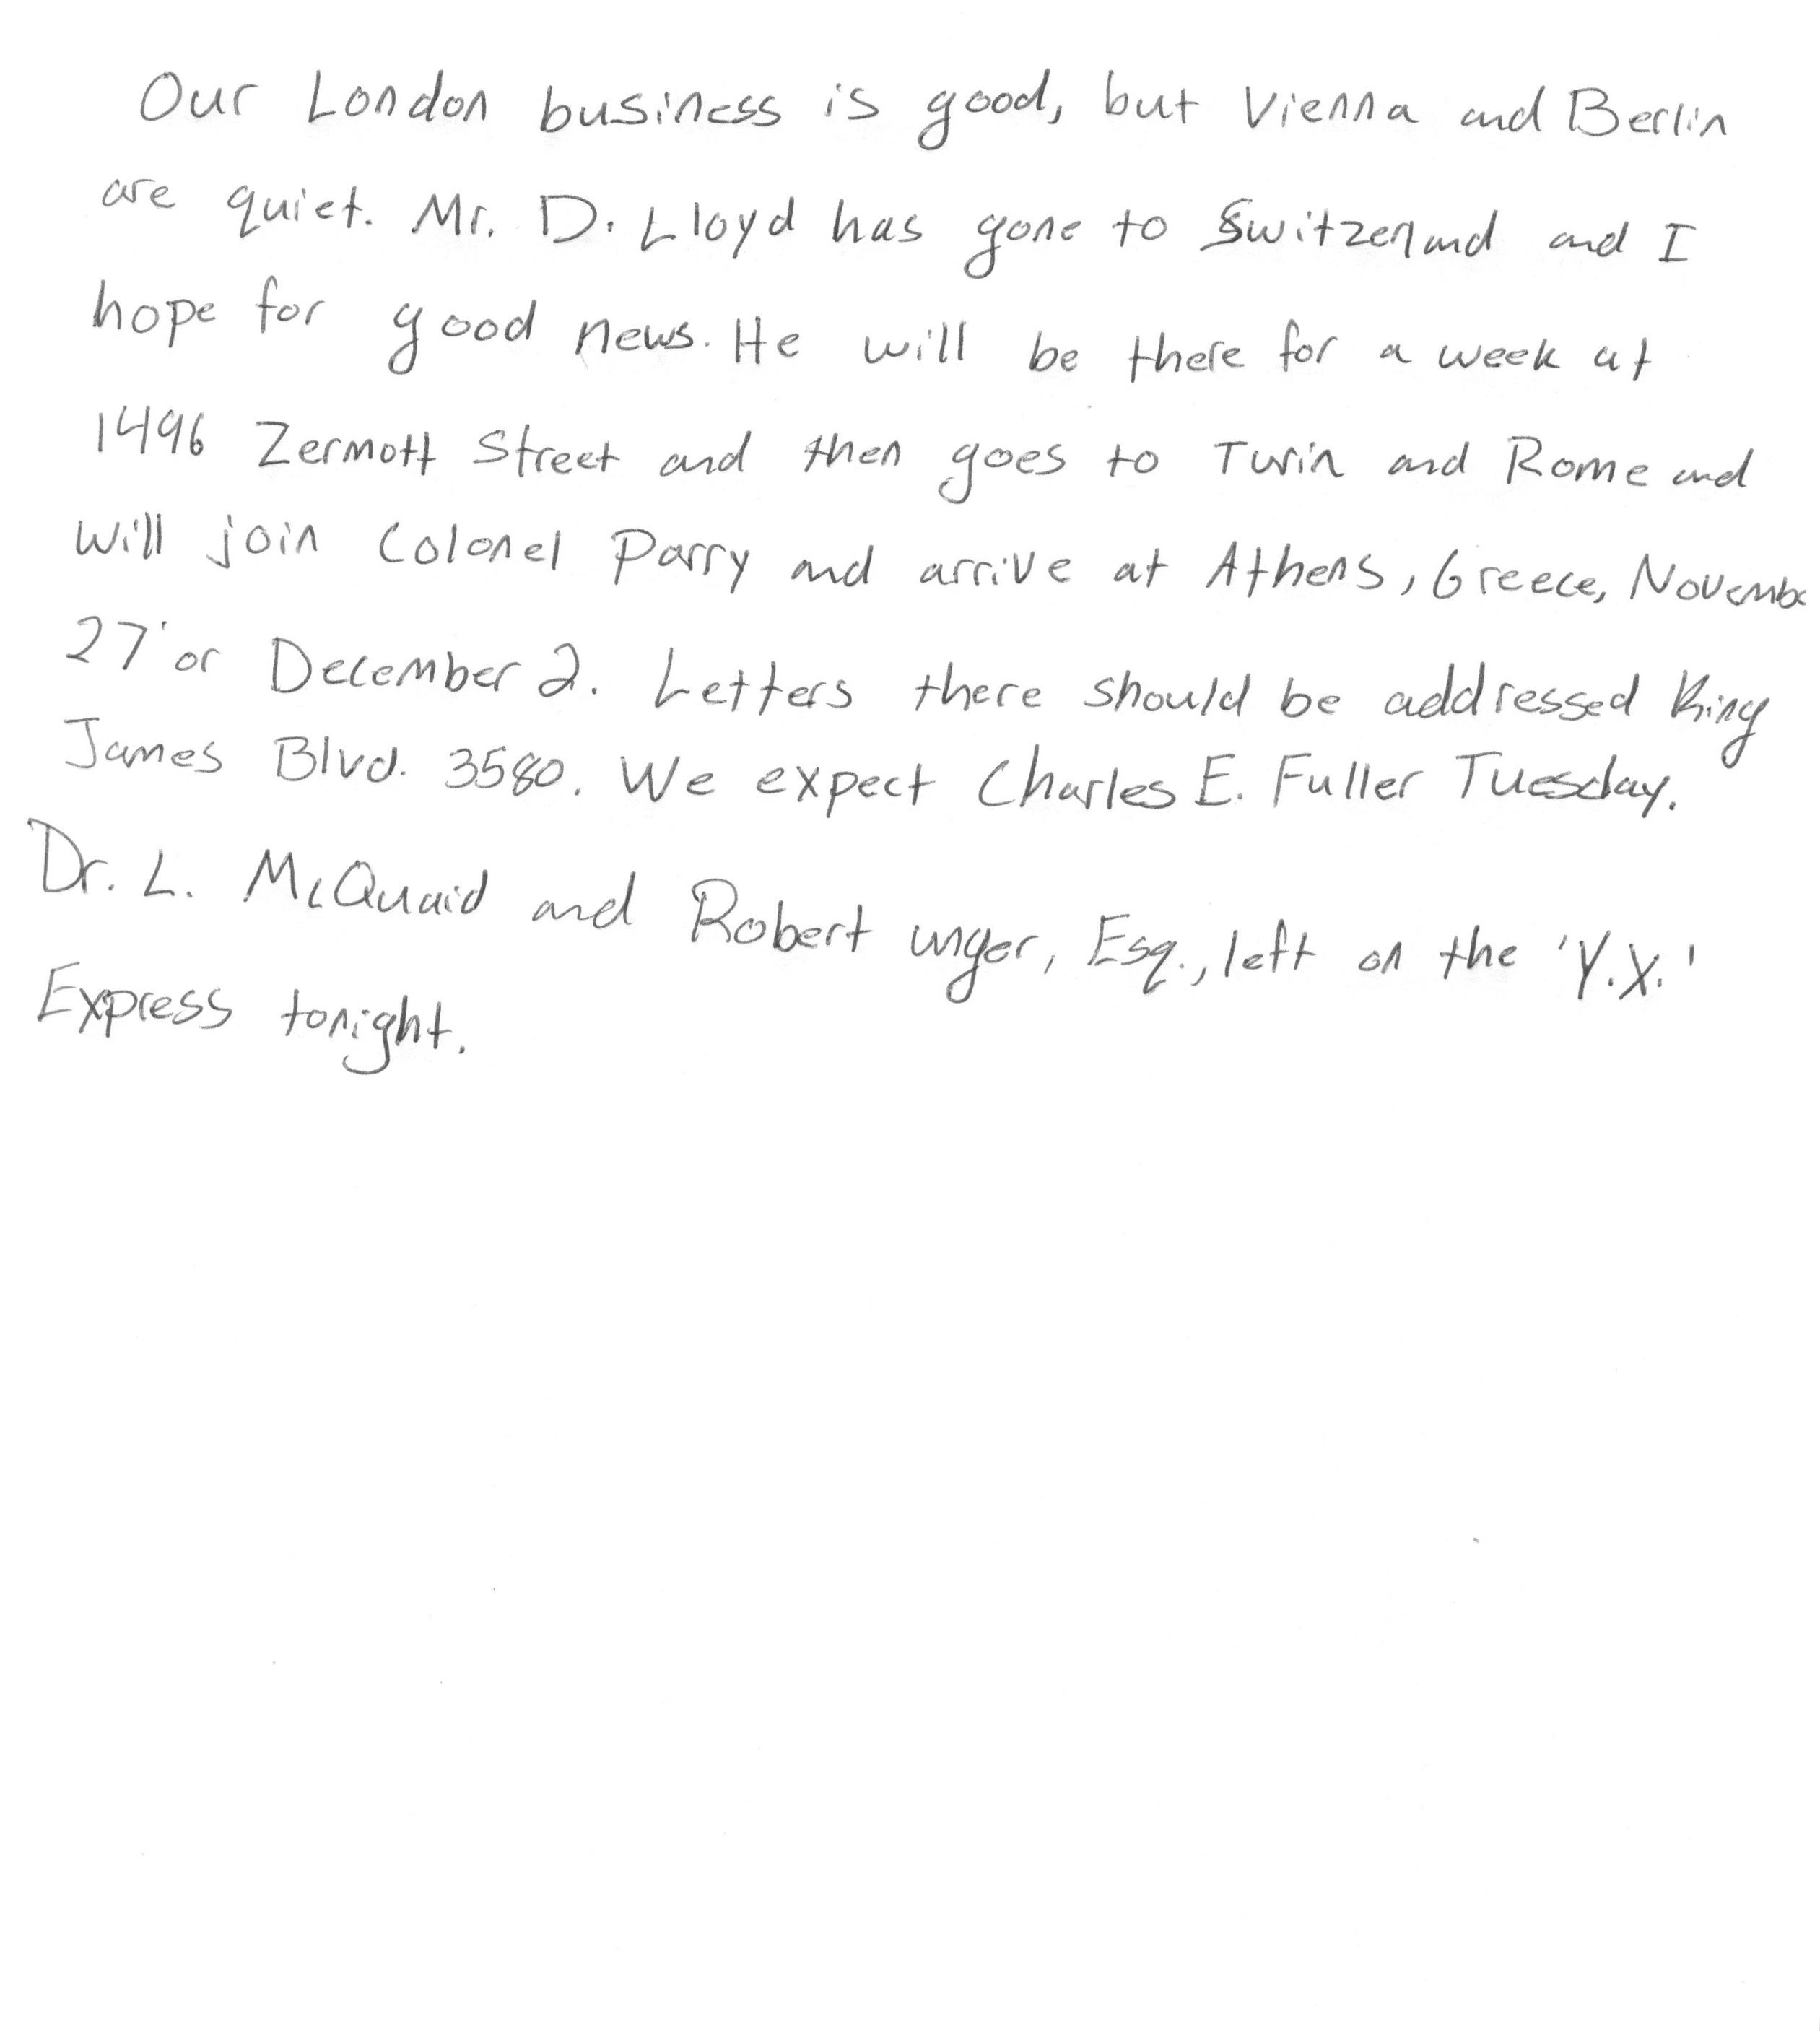 Our London business is good, but Vienna and Berlin
are quiet. Mr. D. Lloyd has gone to Switzerland and I
hope for good news. He will be there for a week at
1496 Zermott Street and then goes to Turin and Rome and
will join Colonel Parry and arrive at Athens, Greece, Novembe
27 or December 2. Letters there should be addressed King
James Blvd. 3580. We expect Charles E. Fuller Tuesday.
Dr. L. McQuaid and Robert unger, Esq., left on the 'Y.X.'
Express tonight.